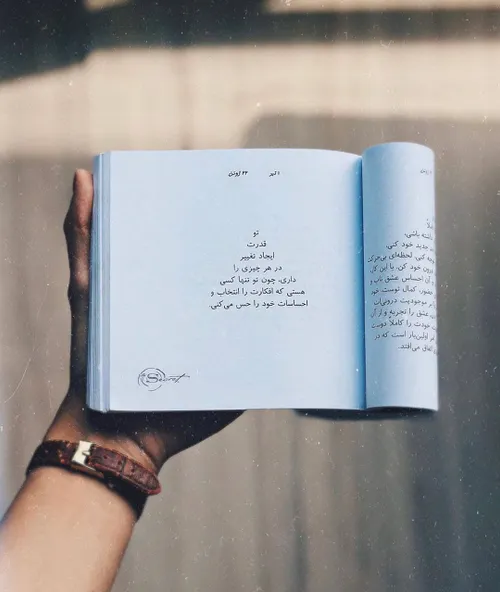 ۱ تیر ۲۲ ژوئن
تو
قدرت
ایجاد تغییر
در هر چیزی را
داری، چون تو تنها کسی
هستی که افکارت را انتخاب و
احساسات خود را حس می‌کنی.
Secret
ژوئن
کاملاً
داشته باشی.
جدید خود کنی.
کنی، لحظه‌ای بی‌حرکت
درون خود کن. با این کار
آن احساس عشق ناب و
حضور، کمال توست. خو
موجودیت درونی‌ات
عشق را تجربه و از آن
خودت را کاملاً دوست
اولین‌بار است که در
اتفاق می‌افتد.